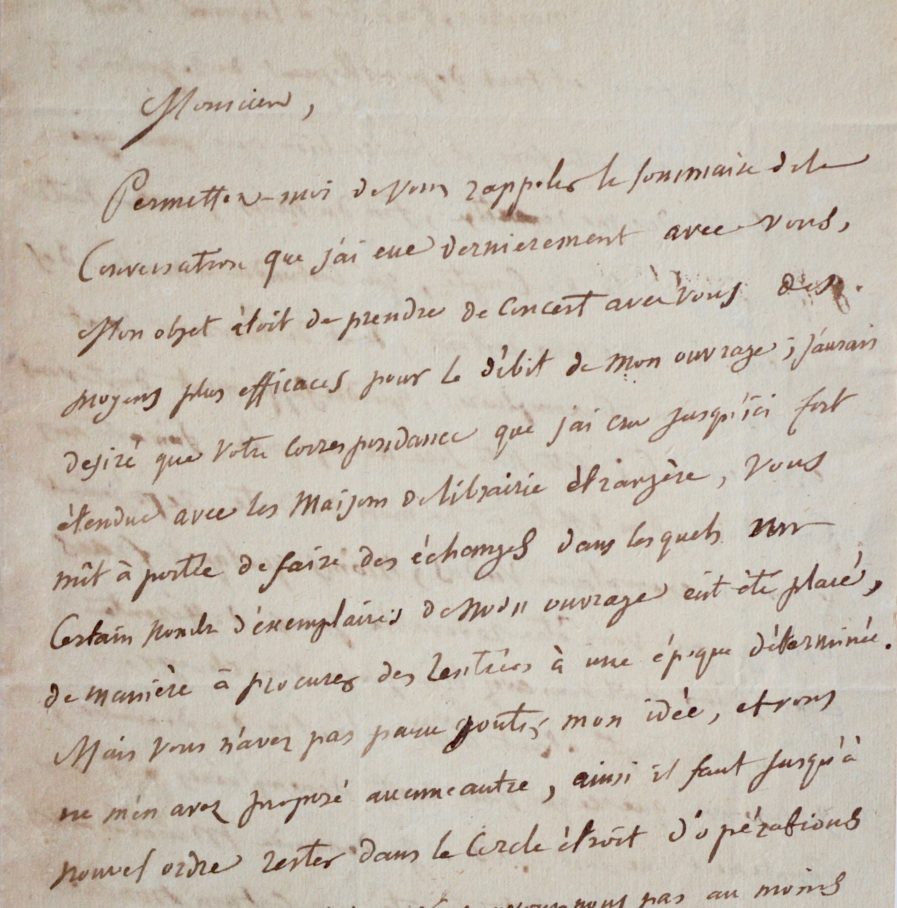 Monsieur,
Permettez-moi de vous rappeler le sommaire de la
Conversation que j'ai eue dernierement avec vous,
Mon objet étoit de prendre de Concert avec vous des
moyens plus efficaces pour le débit de mon ouvrage; j'aurais
desiré que votre correspondance que j'ai cru jusqu'ici fort
étendue avec les Maisons de librairie étrangère, vous
mît à portée de faire des échanges dans lesquels un
Certain nombre d'exemplaires de mon ouvrage eût été placé,
de manière à procurer des rentrées à une époque déterminée.
Mais vous n'avez pas paru gouter mon idée, et vous
ne m'en avez proposé aucune autre, ainsi il faut jusqu'à
nouvel ordre rester dans le Cercle étroit d'opérations
pas au moins